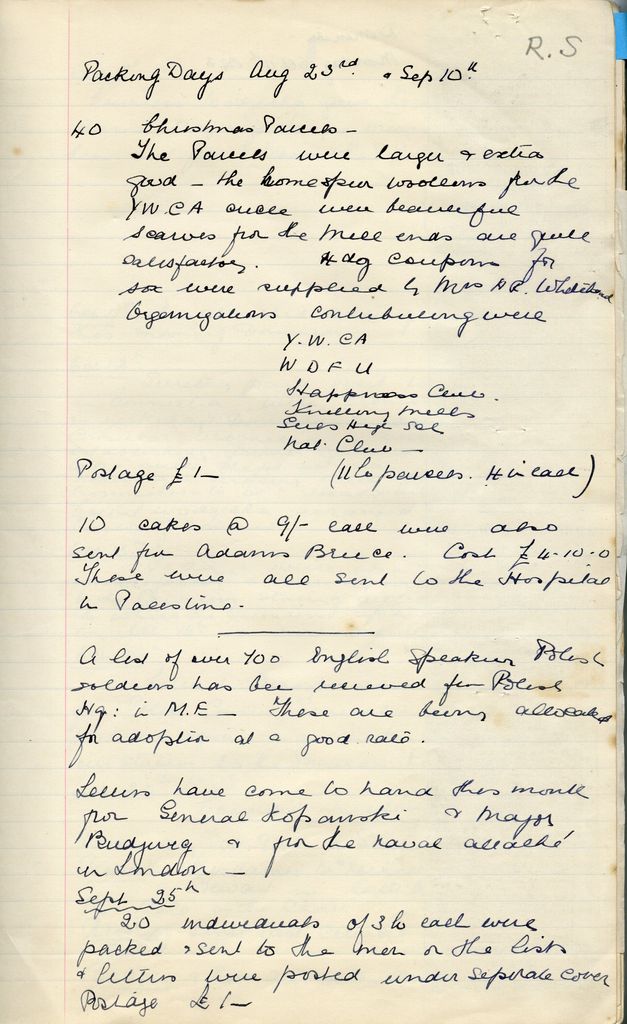 R.S
Packing Days Aug 23rd & Sep 10th
40 Christmas Parcels -
The Parcels were larger & extra
good - the homespun woollens from the
Y.W.CA circle were beautiful
scarves from the mill ends are quite
satisfactory. Hdg coupons for
sox were supplied by Mrs
Organizations contributing were
Y.W.CA
W D F U
Happiness Club.
Knitting Mills
Girls High Scl
Nat. Club -
Postage £1- (11 lb parcels. 4 in each)
10 cakes @ 9/- each were also
sent from Adams Bruce. Cost £4-10-0
These were all sent to the Hospital
in Palestine.
A list of over 700 English speaking Polish
soldiers has been received from Polish
Hq: in M.E - These are being allocated
for adoption at a good rate.
Letters have come to hand this month
from General Kopanski & Major
& from the naval attaché
in London -
Sept 25th
20 individuals of 3 lb each were
packed & sent to the men on the lists
& letters were posted under separate cover
Postage £1-